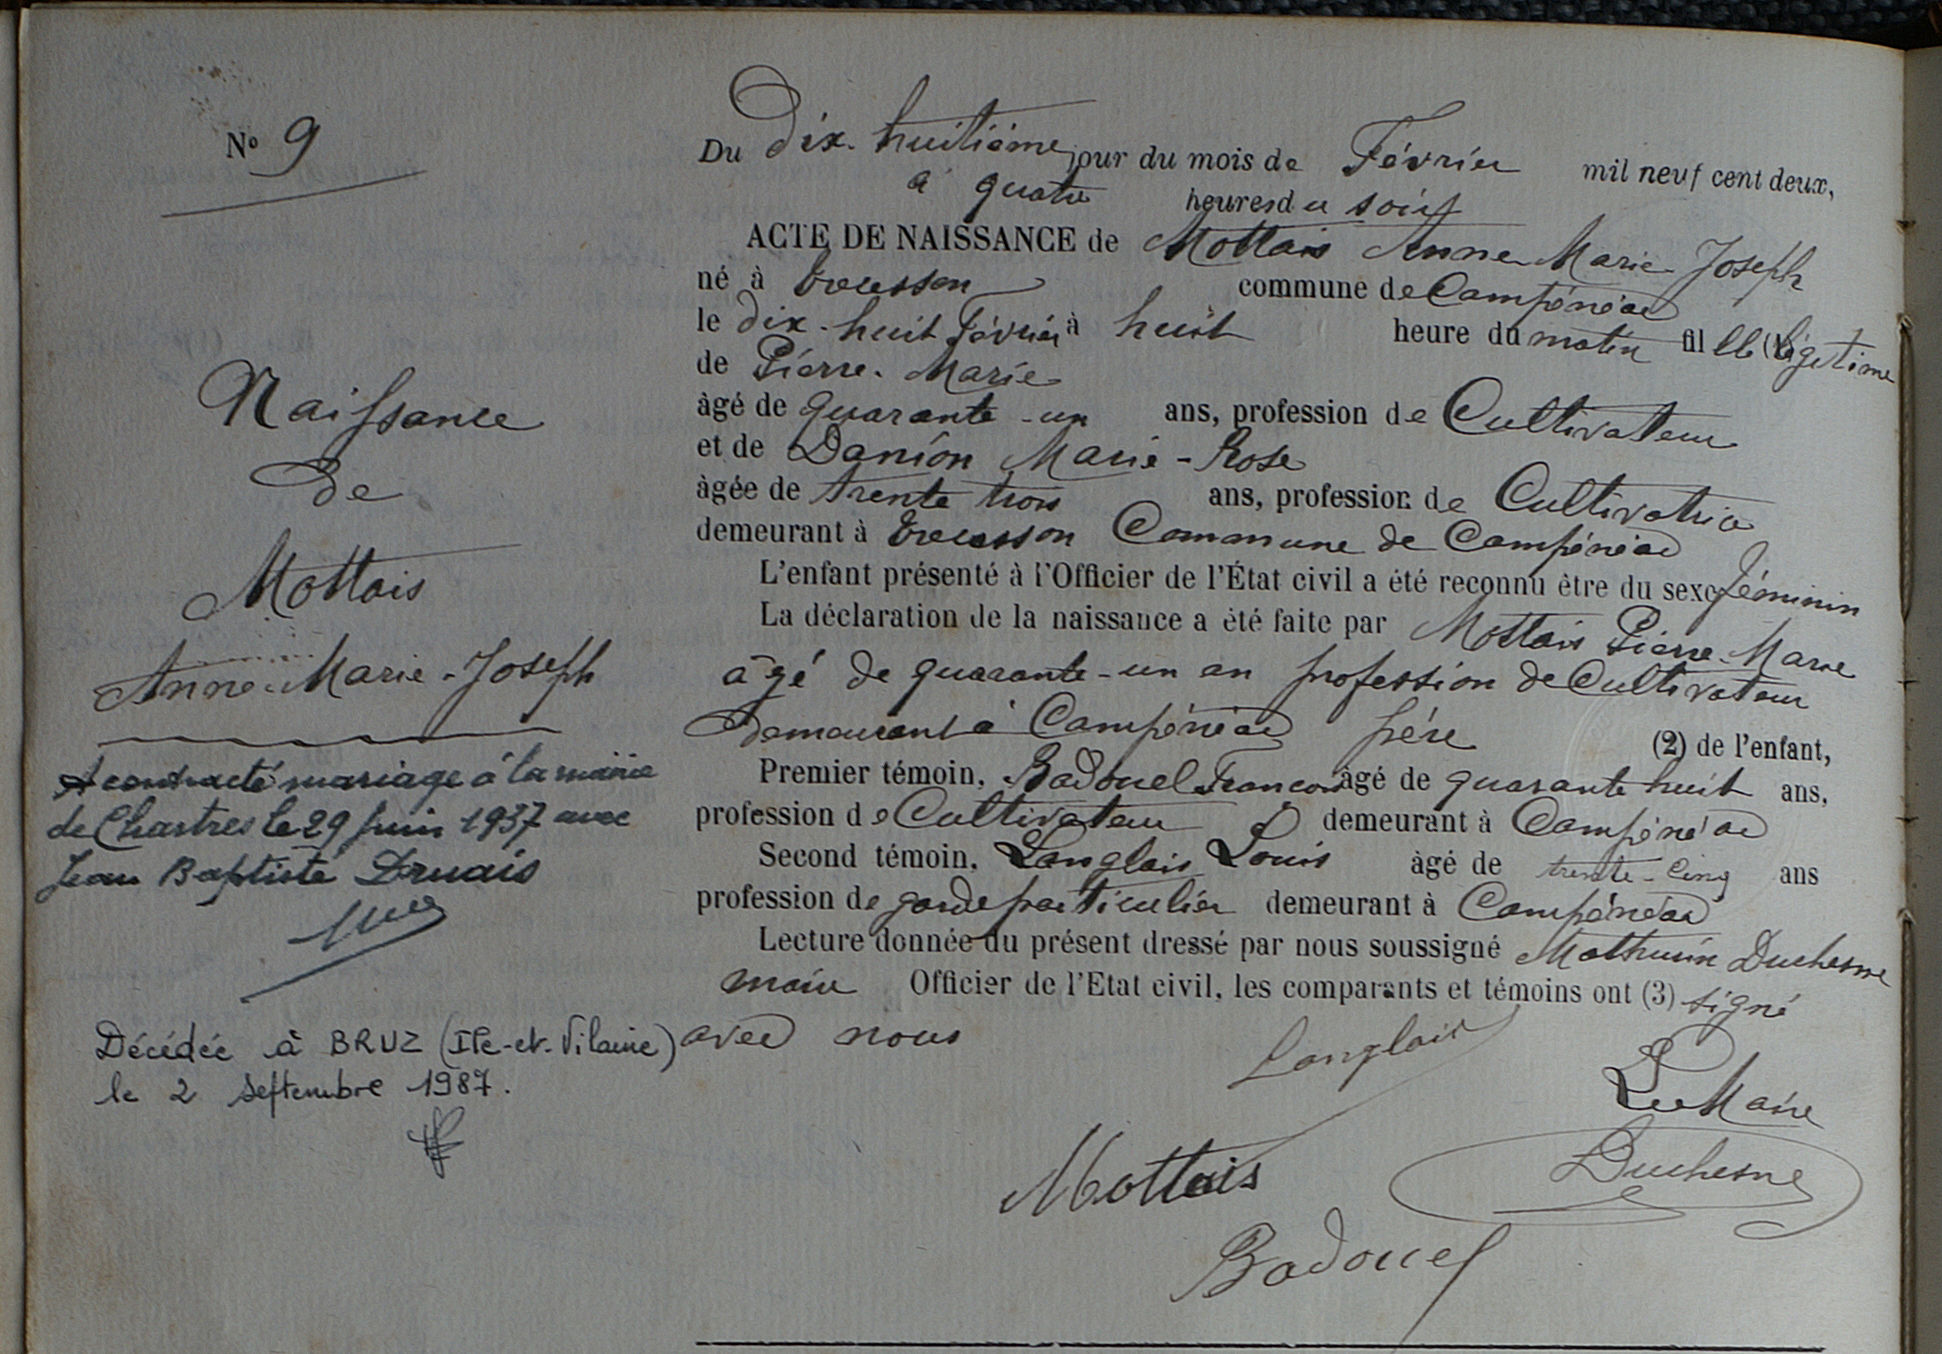 N° 9
Naissance
de
Mottais
Anne-Marie-Joseph
A contracté mariage à la mairie
de Chartres le 29 Juin 1937 avec
Jean Baptiste Druais
Décédée à BRUZ (Ille-et-Vilaine)
le 2 septembre 1987.
Du dix-huitième jour du mois de Février mil neuf cent deux,
à quatre heures du soir
ACTE DE NAISSANCE de Mottais Anne-Marie-Joseph
né à commune de Campénéac
le dix-huit Février à huit heure du matin fille (1) légitime
de Pierre-Marie
âgé de quarante-un ans, profession de Cultivateur
et de Danion Marie-Rose
âgée de trente trois ans, profession de Cultivatrice
demeurant à Commune de Campénéac
L'enfant présenté à l'Officier de l'État civil a été reconnu être du sexe féminin
La déclaration de la naissance a été faite par Mottais Pierre-Marie
âgé de quarante-un an profession de Cultivateur
demeurant à Campénéac père (2) de l'enfant,
Premier témoin, Badouel Francois âgé de quarante huit ans,
profession de Cultivateur demeurant à Campénéac
Second témoin, Langlais Louis âgé de trente-cinq ans
profession de garde particulier demeurant à Campénéac
Lecture donnée du présent dressé par nous soussigné Mathurin Duchesne
maire Officier de l'Etat civil, les comparants et témoins ont (3) signé
avec nous
Langlais
Le Maire
Mottais
Duchesne
Badouel